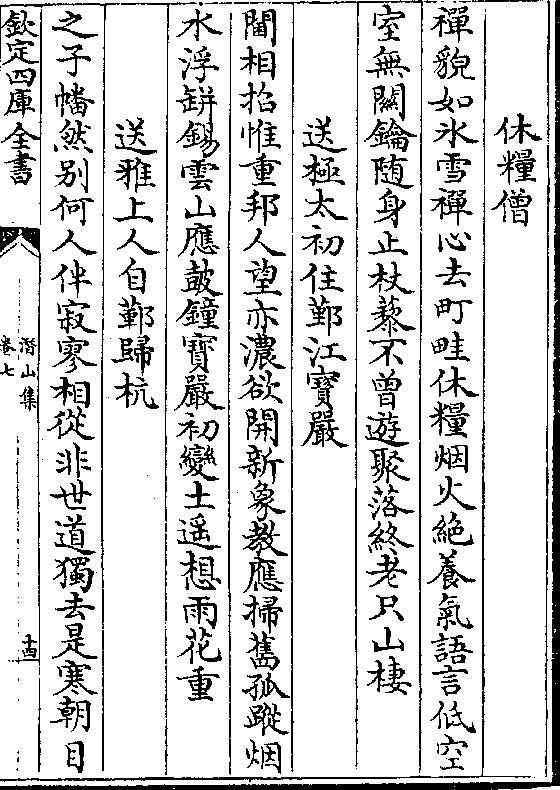 休糧僧
禪貌如氷雪禪心去町畦休糧烟火絶養氣語言低空
室無關鑰随身止杖藜不曽遊聚落終老只山棲
送極太初住鄞江寶嚴
閫相招惟重邦人望亦濃欲開新象教應掃舊孤蹤烟
水浮缾錫雲山應皷鐘寶嚴初變土遥想雨花重
送雅上人自鄞歸杭
之子幡然别何人伴寂寥相從非世道獨去是寒朝目
欽定四庫全書
潛山集
卷七
十四